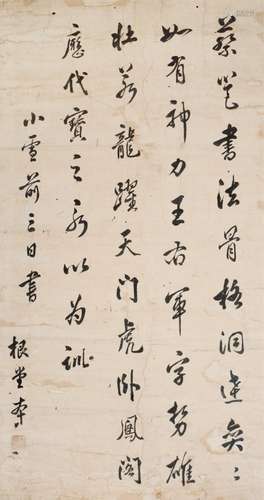 蔡邕書法骨格洞達奕〻
如有神力王右軍字勢雄
壯若龍躍天門虎卧鳳閣
應代寶之永以為訓
小雪前三日書
根堂